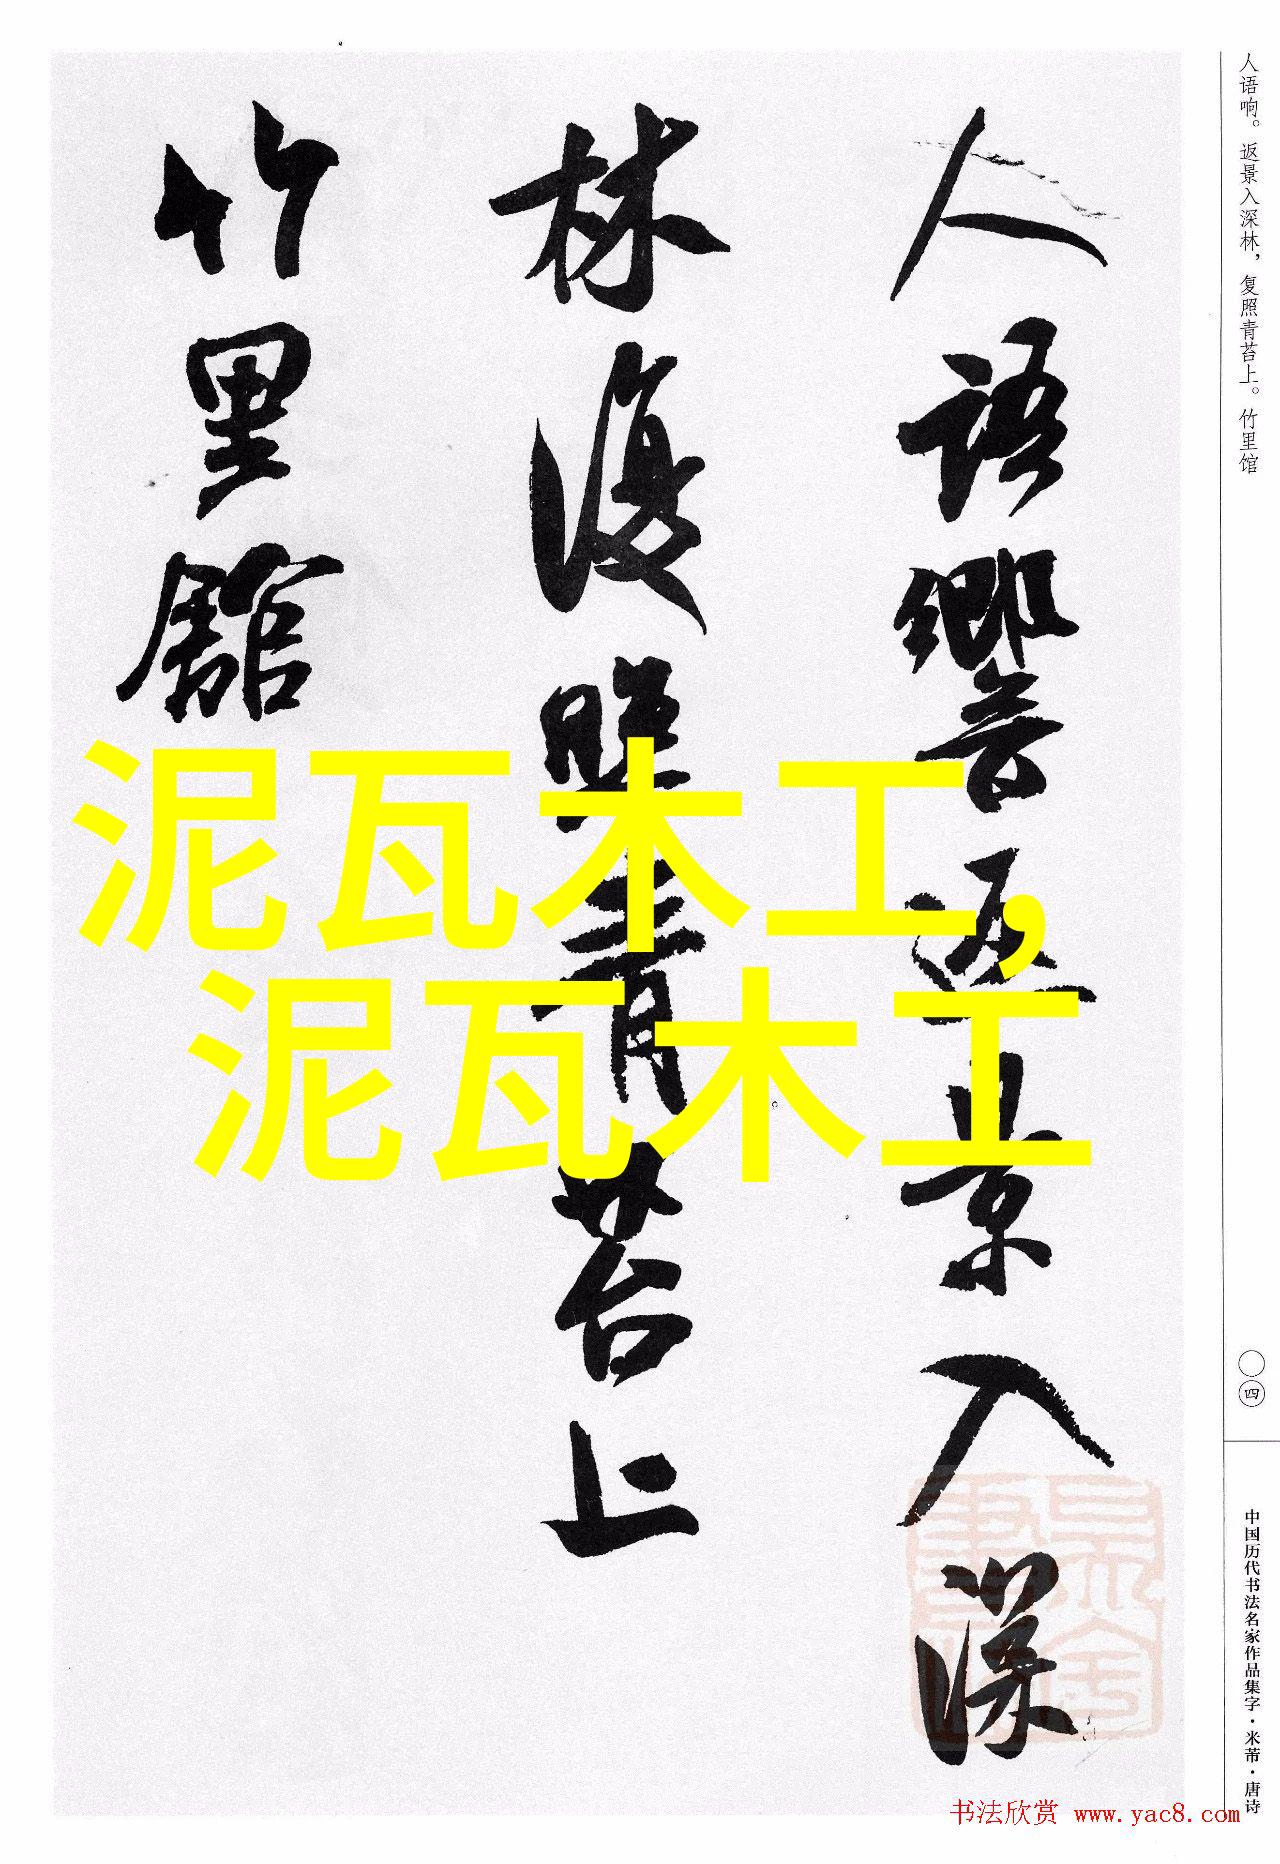 人語響返景入深
林復照青苔上
竹里館
泥瓦木工,
泥瓦木工
人语响。返景入深林，复照青苔上。竹里馆
〇四
中国历代书法名家作品集字·米芾·唐诗
书法欣赏 www.yac8.com